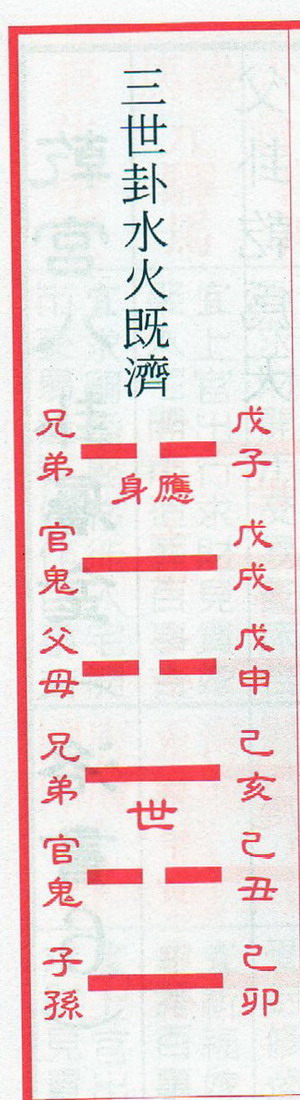 三世卦水火既濟
戊子
兄弟
應
身
戊戌
官鬼
戊申
父母
己亥
兄弟
世
己丑
官鬼
己卯
子孫